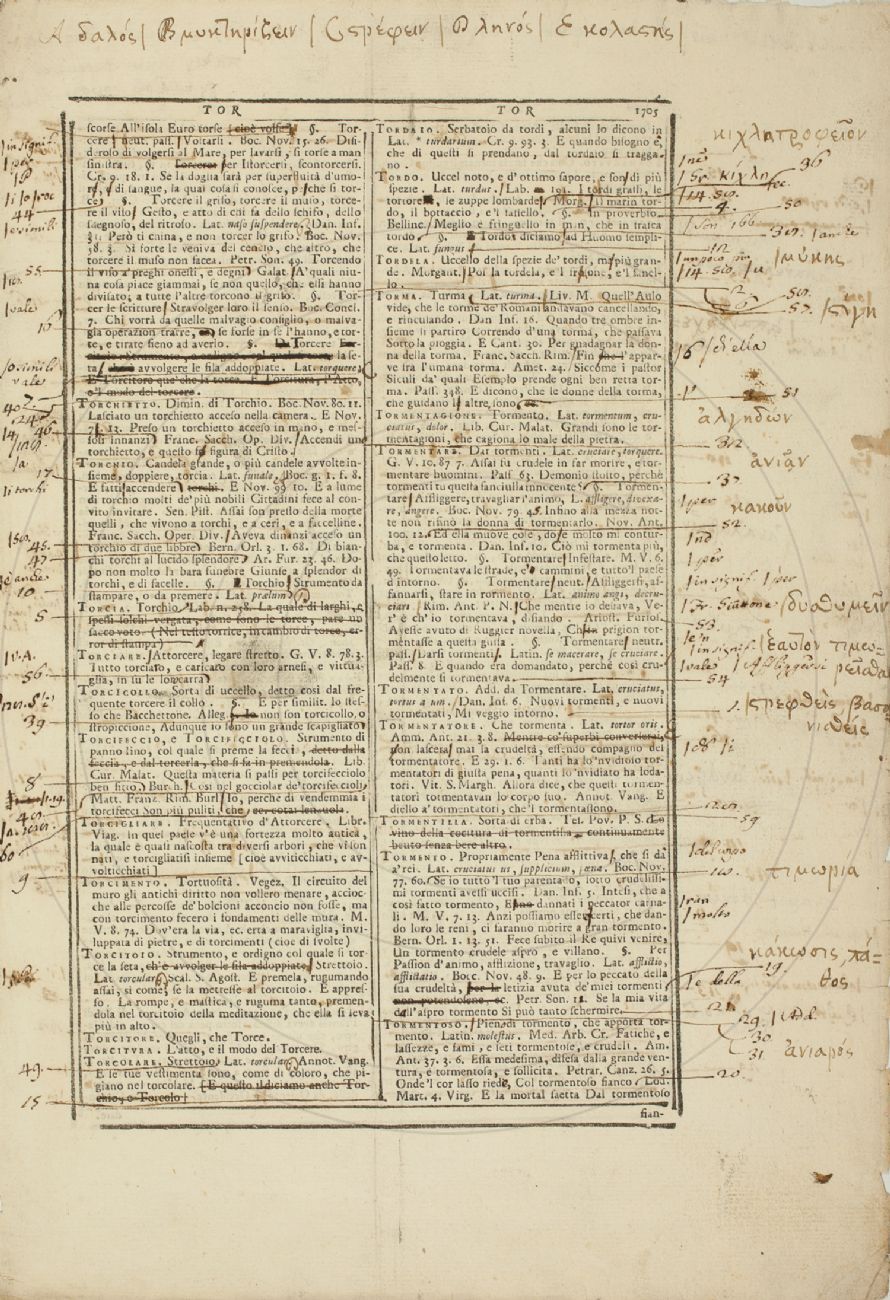 Α δαλός | Β μυκτηρίζειν | C στρέφειν | D ληνός | Ε κολαστής |
TOR
scorse All'isola Euro torse [cioè volse] §. Tor-
cere neut. pass. Voltarsi. Boc. Nov. 15. 26. Disi-
deroso di volgersi al Mare, per lavarsi, si torse a man
sinistra. §. Torcere per Istorcersi, scontorcersi.
Cr. 9. 18. 1. Se la doglia sarà per superfluità d'umo-
ri, di sangue, la qual cosa si conosce, perchè si tor-
ce §. Torcere il grifo, torcere il muso, torce-
re il viso Gesto, e atto di chi fa dello schifo, dello
sdegnoso, del ritroso. Lat. naso suspendere Dan. Inf.
31. Però ti china, e non torcer lo grifo. Boc. Nov.
58. 3. Sì forte le veniva del cencio, che altro, che
torcere il muso non facea. Petr. Son. 49. Torcendo
il viso a' preghi onesti, e degni Galat. A' quali niu-
na cosa piace giammai, se non quello, che essi hanno
divisato; a tutte l'altre torcono il grifo. §. Tor-
cer le scritture Stravolger loro il senso. Boc. Concl.
7. Chi vorrà da quelle malvagio consiglio, o malva-
gia operazion trarre, se forse in se l'hanno, e tor-
te, e tirate sieno ad averlo. §. Torcere
la se-
ta avvolgere le fila addoppiate. Lat. torquere
E Torcitoro que'che la torce. E Torcitura, l'Atto,
e'l modo del torcere.
TORCHIETTO. Dimin. di Torchio. Boc. Nov. 80. 11.
Lasciato un torchietto acceso nella camera. E Nov.
7. 13. Preso un torchietto acceso in mano, e mes-
sosi innanzi Franc. Sacch. Op. Div. Accendi un
torchietto, e questo fia figura di Cristo
TORCHIO. Candela grande, o più candele avvolte in-
sieme, doppiere, torcia. Lat. funale. Boc. g. 1. f. 8.
E fatti accendere torchi. E Nov. 99. 10. E a lume
di torchio molti de' più nobili Cittadini fece al con-
vito invitare. Sen. Pist. Assai son presso della morte
quelli, che vivono a torchi, e a ceri, e a faccelline.
Franc. Sacch. Oper. Div. Aveva dinanzi acceso un
torchio di due libbre Bern. Orl. 3. 1. 68. Di bian-
chi torchi al lucido splendore Ar. Fur. 23. 46. Do-
po non molto la bara funebre Giunse, a splendor di
torchi, e di facelle. §. Torchio Strumento da
stampare, o da premere. Lat. prælum
TORCIA. Torchio Lab. n. 258. La quale di larghi, e
spessi solchi vergata, come sono le torce, pare un
sacco voto (Nel testo torrice, in cambio di torce, er-
ror di stampa)
TORCIARE. Attorcere, legare stretto. G. V. 8. 78. 3.
Tutto torciaro, e caricaro con loro arnesi, e vittua-
glia, in su le lor carra
TORCICOLLO. Sorta di uccello, detto così dal fre-
quente torcere il collo. §. E per similit. lo stes-
so che Bacchettone. Alleg. Io non son torcicollo, o
stropiccione, Adunque io sono un grande scapigliato
TORCIFECCIO, e TORCIFECCIOLO. Strumento di
panno lino, col quale si preme la feccia, detto dalla
feccia, e dal torcerla, che si fa in premendola. Lib.
Cur. Malat. Questa materia si passi per torcifecciolo
ben fitto. Burch. Così nel gocciolar de' torcifeccioli
Matt. Franz. Rim. Burl. Io, perchè di vendemmia i
torcifecci Son più puliti
TORCIGLIARE. Frequentativo d'Attorcere. Libr.
Viag. In quel paese v'è una fortezza molto antica,
la quale è quasi nascosta tra diversi arbori, che vi son
nati, e torcigliatisi insieme [cioè avviticchiati, e av-
volticchiati]
TORCIMENTO. Tortuosità. Vegez. Il circuito del
muro gli antichi diritto non vollero menare, accioc-
chè alle percosse de' bolcioni acconcio non fosse, ma
con torcimento fecero i fondamenti delle mura. M.
V. 8. 74. Dov'era la via, ec. erta a maraviglia, invi-
luppata di pietre, e di torcimenti (cioè di svolte)
TORCITOIO. Strumento, e ordigno col quale si tor-
ce la seta, ch'è avvolger le fila addoppiate Strettoio.
Lat. torcular Scal. S. Agost. E premela, rugumando
assai, sì come, se la mettesse al torcitoio. E appres-
so. La rompe, e mastica, e ruguma tanto, premen-
dola nel torcitoio della meditazione, che ella si leva
più in alto.
TORCITORE. Quegli, che Torce.
TORCITURA. L'atto, e il modo del Torcere.
TORCOLARE. Strettoio. Lat. torcular Annot. Vang.
E le tue vestimenta sono, come di coloro, che pi-
giano nel torcolare. [E questo sì diciamo anche Tor-
chio, o Torcolo]
TOR 1705
TORDAIO. Serbatoio da tordi, alcuni lo dicono in
Lat. * turdarium. Cr. 9. 93. 3. E quando bisogno è,
che di questi si prendano, dal tordaio si tragga-
no.
TORDO. Uccel noto, e d'ottimo sapore, e son di più
spezie. Lat. turdus. Lab. 191. I tordi grassi, le
tortore, le zuppe lombarde Morg. Il marin tor-
do, il bottaccio, e 'l sassello. §. In proverbio.
Belline. Meglio è fringuello in man, che in frasca
tordo §. Tordo diciamo ad Huomo sempli-
ce. Lat. fungus
TORDELA. Uccello della spezie de' tordi, ma più gran-
de. Morgant. Poi la tordela, e 'l frisone, e 'l fanel-
lo.
TORMA. Turma. Lat. turma. Liv. M. Quell'Aulo
vide, che le torme de' Romani andavano cancellando,
e rinculando. Dan Inf. 16. Quando tre ombre in-
sieme si partiro Correndo d'una torma, che passava
Sotto la pioggia. E Cant. 30. Per guadagnar la don-
na della torma. Franc. Sacch. Rim. Fin che l'appar-
ve fra l'umana torma. Amet. 24. Siccome i pastor
Siculi da' quali Esemplo prende ogni ben retta tor-
ma. Pass. 348. E dicono, che le donne della torma,
che guidano le altre, sono
TORMENTAGIONE. Tormento. Lat. tormentum, cru-
ciatus, dolor. Lib. Cur. Malat. Grandi sono le tor-
mentagioni, che cagiona lo male della pietra.
TORMENTARE. Dar tormenti. Lat. cruciare, torquere.
G. V. 10. 87 7. Assai fu crudele in far morire, e tor-
mentare huomini. Pass. 63. Demonio stolto, perchè
tormenti tu questa fanciulla innocente §. Tormen-
tare Affliggere, travagliar l'animo, L. affligere, divexa-
re, angere. Boc. Nov. 79. 45. Infino alla mezza not-
te non rifinò la donna di tormentarlo. Nov. Ant.
100. 12. Ed ella muove cose, dose molto mi contur-
ba, e tormenta. Dan. Inf. 10. Ciò mi tormenta più,
che questo letto. §. Tormentare Infestare. M. V. 6.
49. Tormentava le strade, e' cammini, e tutto 'l paese
d'intorno. §. Tormentare neut. Affliggersi, af-
fannarsi, stare in tormento. Lat. animo angi, decru-
ciari Rim. Ant. P. N. Che mentre io desiava, Ve-
r'è ch' io tormentava, disiando. Ariost. Furios.
Avesse avuto di Ruggier novella, Ch'in prigion tor-
mentasse a questa guisa. §. Tormentare neutr.
pass. Darsi tormenti. Latin. se macerare, se cruciare.
Pass. 8. E quando era domandato, perchè così cru-
delmente si tormentava
TORMENTATO. Add. da Tormentare. Lat. cruciatus,
tortus a um. Dan. Inf. 6. Nuovi tormenti, e nuovi
tormentati, Mi veggio intorno.
TORMENTATORE. Che tormenta. Lat. tortor oris.
Amm. Ant. 21. 3. 8. Mentre co' superbi converserai,
non lascerai mai la crudeltà, essendo compagno del
tormentatore. E 29. 1. 6. Tanti ha lo 'nvidioso tor-
mentatori di giusta pena, quanti lo 'nvidiato ha loda-
tori. Vit. S. Margh. Allora dice, che questi tormen-
tatori tormentavan lo corpo suo. Annot. Vang. E
diello a' tormentatori, che 'l tormentassono.
TORMENTILLA. Sorta di erba. Tes. Pov. P. S. Lo
vino della cocitura di tormentilla continuamente
beuto senza bere altro.
TORMENTO. Propriamente Pena afflittiva, che si dà
a' rei. Lat. cruciatus us, supplicium, pœna. Boc. Nov.
77. 60. Se io tutto 'l tuo parentado, sotto crudelissi-
mi tormenti avessi uccisi. Dan. Inf. 5. Intesi, che a
così fatto tormento, Eran dannati i peccator carna-
li. M. V. 7. 13. Anzi possiamo esser certi, che dan-
do loro le reni, ci faranno morire a gran tormento.
Bern. Orl. 1. 13. 51. Fece subito il Re quivi venire,
Un tormento crudele aspro, e villano. §. Per
Passion d'animo, afflizione, travaglio. Lat. afflictio,
afflictatio. Boc. Nov. 48. 9. E per lo peccato della
sua crudeltà, per la letizia avuta de' miei tormenti
non potendosene, ec. Petr. Son. 12. Se la mia vita
dall'aspro tormento Si può tanto schermire
TORMENTOSO. Pien di tormento, che apporta tor-
mento. Latin. molestus. Med. Arb. Cr. Fatiche, e
lassezze, e fami, e seti tormentose, e crudeli. Am.
Ant. 37. 3. 6. Essa medesima, discesa dalla grande ven-
tura, è tormentosa, e sollicita. Petrar. Canz. 26. 5.
Onde'l cor lasso riede, Col tormentoso fianco Lod.
Mart. 4. Virg. E la mortal saetta Dal tormentoso
fian-
44
55
16
40
17
45
47
10
5
56
39
8
60
9
49
15
κιχλητροφεῖον
96
κίχλη
50
μύκης
57
d'ella
51
ἀλγηδών
ἀνιᾶν
κακοῦν
per
52
53
ἑαυτὸν τιμω-
ρεῖσθαι
54
στρεφθεὶς βασα-
νισθείς
59
τιμωρία
κάκωσις πά-
θος
19
della
29
30
31
ἀνιαρός
20